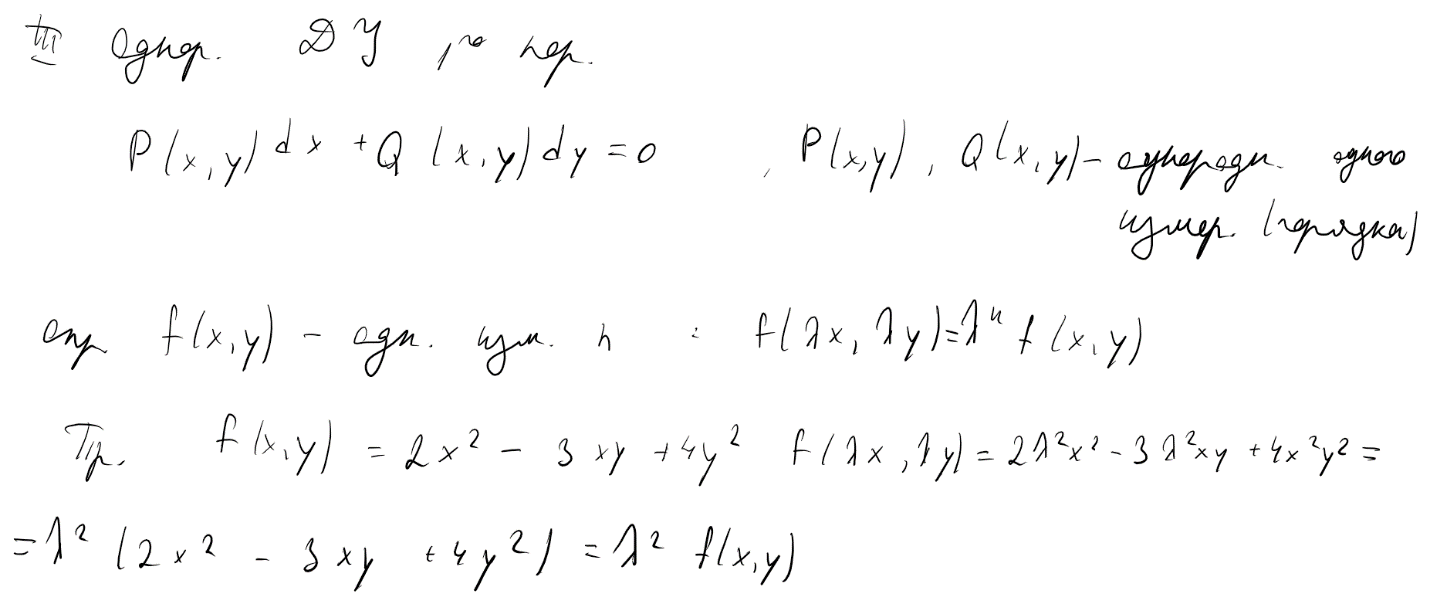 III Однор. ДУ 1го пор.
P(x,y)dx + Q(x,y)dy = 0 , P(x,y), Q(x,y) – однородн. одного
измер. (порядка)
опр f(x,y) – одн. изм. n : f(λx, λy) = λⁿ f(x,y)
Пр. f(x,y) = 2x² – 3xy + 4y² f(λx, λy) = 2λ²x² – 3λ²xy + 4x²y² =
= λ² (2x² – 3xy + 4y²) = λ² f(x,y)